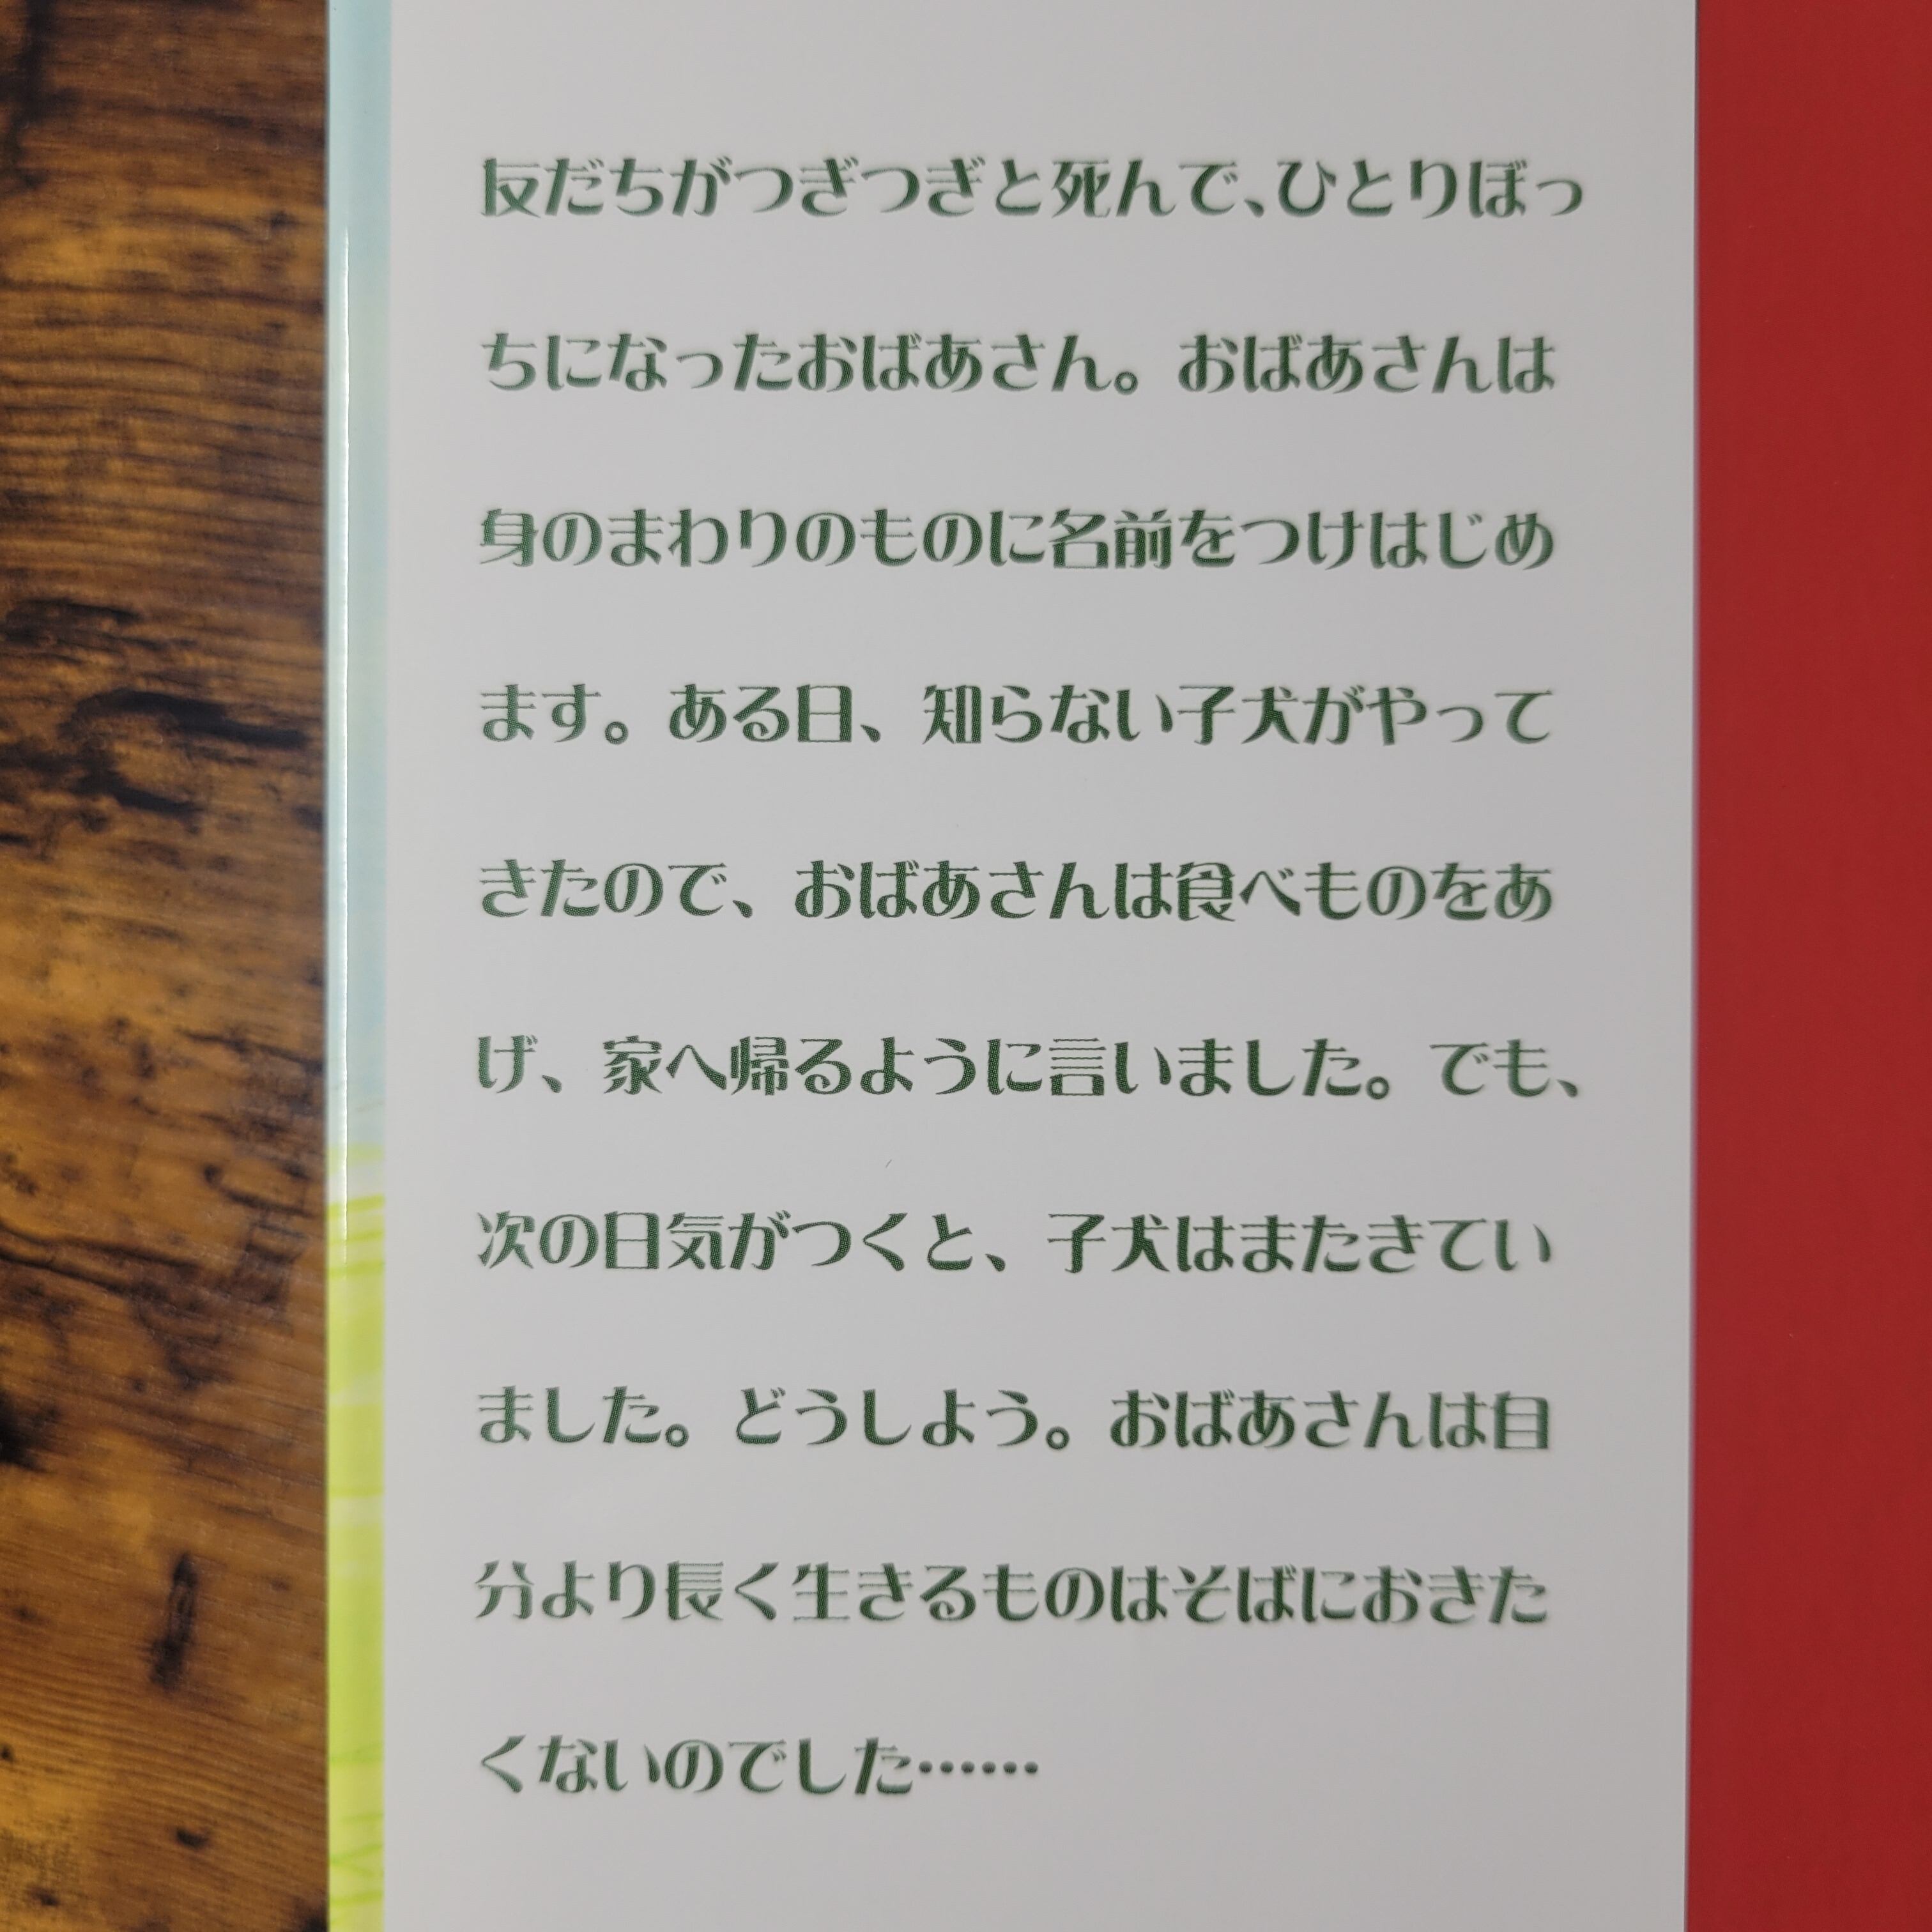 友だちがつぎつぎと死んで、ひとりぼっ
ちになったおばあさん。おばあさんは
身のまわりのものに名前をつけはじめ
ます。ある日、知らない子犬がやって
きたので、おばあさんは食べものをあ
げ、家へ帰るように言いました。でも、
次の日気がつくと、子犬はまたきてい
ました。どうしよう。おばあさんは自
分より長く生きるものはそばにおきた
くないのでした……